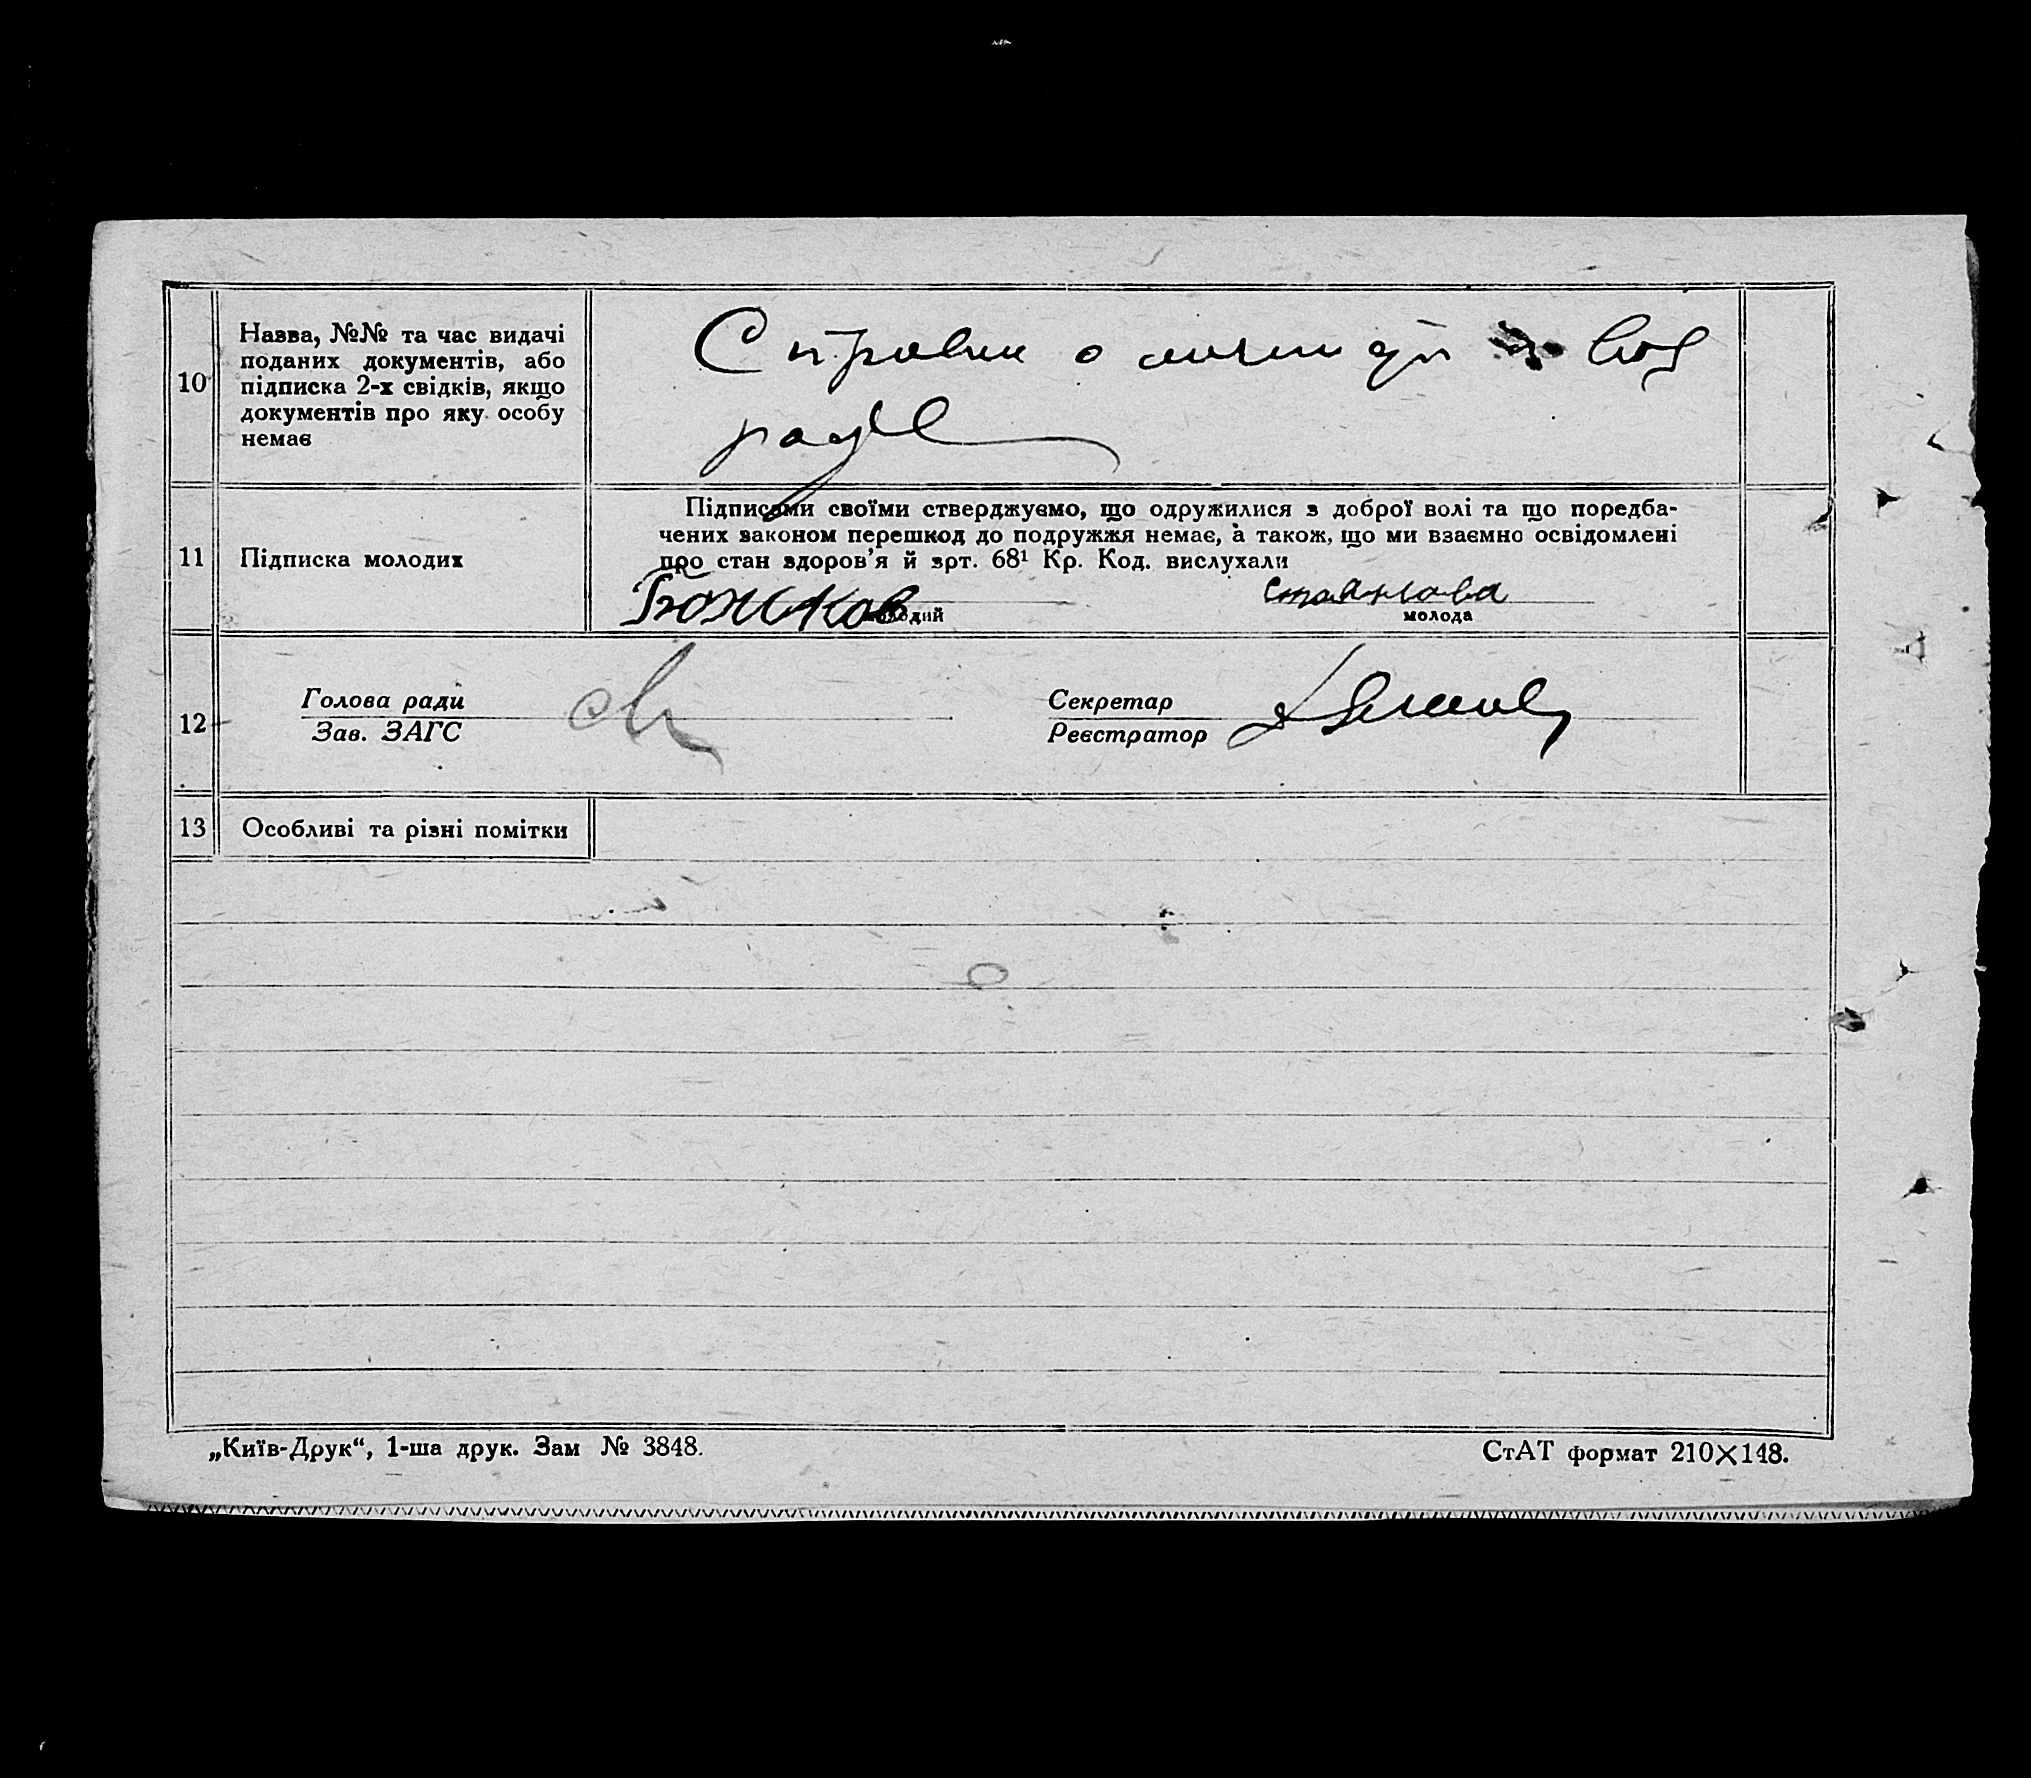 10
Назва, №№ та час видачі
поданих документів, або
підписка 2-х свідків, якщо
документів про яку особу
немає
Справки о
11
Підписка молодих
Підписами своїми стверджуємо, що одружилися з доброї волі та що поредба-
чених законом перешкод до подружжя немає, а також, що ми взаємно освідомлені
про стан здоров'я й зрт. 68¹ Кр. Код. вислухали
Божков
молодий
Стоянова
молода
12
Голова ради
Зав. ЗАГС
Секретар
Реєстратор
13
Особливі та різні помітки
„Київ-Друк“, 1-ша друк. Зам № 3848.
СтАТ формат 210×148.